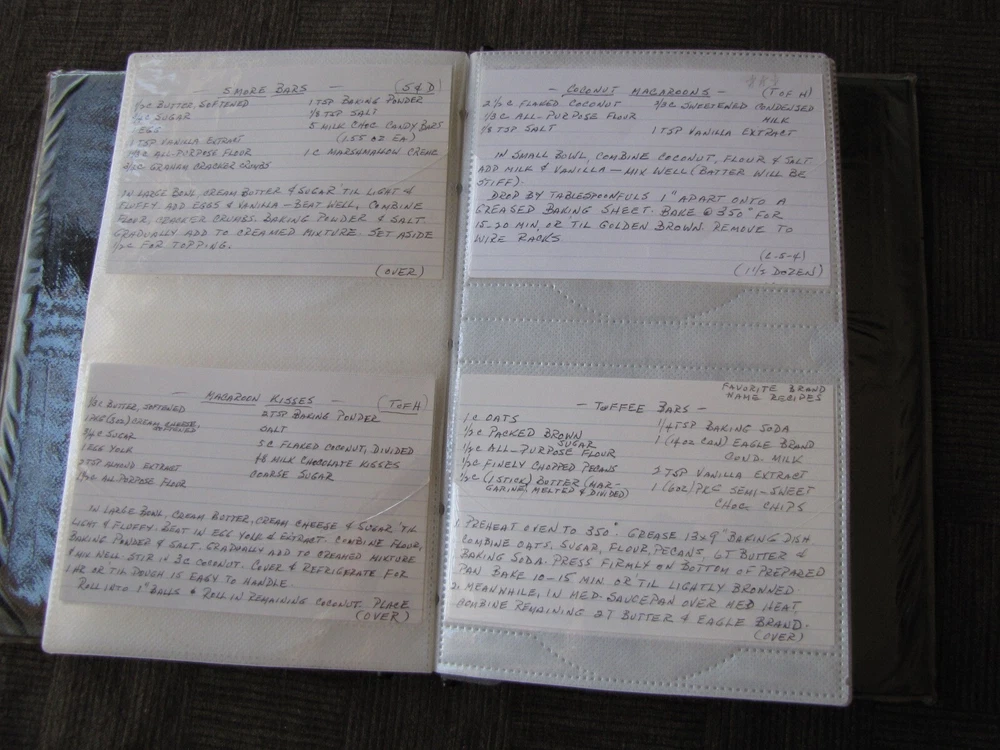 - S'MORE BARS - (S&D)
1/2 C BUTTER, SOFTENED
SUGAR
EGGS
1 TSP VANILLA EXTRACT
ALL-PURPOSE FLOUR
GRAHAM CRACKER CRUMBS
1 TSP BAKING POWDER
1/8 TSP SALT
5 MILK CHOC CANDY BARS
(1.55 OZ EA)
1 C MARSHMALLOW CREME
IN LARGE BOWL, CREAM BUTTER & SUGAR 'TIL LIGHT &
FLUFFY. ADD EGGS & VANILLA - BEAT WELL, COMBINE
FLOUR, CRACKER CRUMBS, BAKING POWDER & SALT.
GRADUALLY ADD TO CREAMED MIXTURE. SET ASIDE
1/2 C FOR TOPPING.
(OVER)
- MACAROON KISSES - (T OF H)
1/3 C BUTTER, SOFTENED
1 PKG (3 OZ) CREAM CHEESE,
SOFTENED
3/4 C SUGAR
1 EGG YOLK
2 TSP ALMOND EXTRACT
ALL-PURPOSE FLOUR
2 TSP BAKING POWDER
SALT
5 C FLAKED COCONUT, DIVIDED
48 MILK CHOCOLATE KISSES
COARSE SUGAR
IN LARGE BOWL, CREAM BUTTER, CREAM CHEESE & SUGAR 'TIL
LIGHT & FLUFFY. BEAT IN EGG YOLK & EXTRACT. COMBINE FLOUR,
BAKING POWDER & SALT. GRADUALLY ADD TO CREAMED MIXTURE
& MIX WELL. STIR IN 3C COCONUT. COVER & REFRIGERATE FOR
1 HR OR TIL DOUGH IS EASY TO HANDLE.
ROLL INTO 1" BALLS & ROLL IN REMAINING COCONUT. PLACE
(OVER)
- COCONUT MACAROONS - (T OF H)
2 1/2 C FLAKED COCONUT
1/3 C ALL-PURPOSE FLOUR
1/8 TSP SALT
2/3 C SWEETENED CONDENSED
MILK
1 TSP VANILLA EXTRACT
IN SMALL BOWL, COMBINE COCONUT, FLOUR & SALT
ADD MILK & VANILLA - MIX WELL (BATTER WILL BE
STIFF).
DROP BY TABLESPOONFULS 1" APART ONTO A
GREASED BAKING SHEET. BAKE @ 350° FOR
15-20 MIN, OR TIL GOLDEN BROWN. REMOVE TO
WIRE RACKS.
(1 1/2 DOZEN)
FAVORITE BRAND
NAME RECIPES
- TOFFEE BARS -
1 C OATS
1/2 C PACKED BROWN
SUGAR
1/2 C ALL-PURPOSE FLOUR
1/2 C FINELY CHOPPED PECANS
1/2 C (1 STICK) BUTTER (MAR-
GARINE, MELTED & DIVIDED)
1/4 TSP BAKING SODA
1 (14 OZ CAN) EAGLE BRAND
COND. MILK
2 TSP VANILLA EXTRACT
1 (6 OZ) PKG SEMI-SWEET
CHOC CHIPS
1. PREHEAT OVEN TO 350°. GREASE 13x9" BAKING DISH
COMBINE OATS, SUGAR, FLOUR, PECANS, 6T BUTTER &
BAKING SODA. PRESS FIRMLY ON BOTTOM OF PREPARED
PAN. BAKE 10-15 MIN OR TIL LIGHTLY BROWNED.
2. MEANWHILE, IN MED. SAUCEPAN OVER MED HEAT
COMBINE REMAINING 2T BUTTER & EAGLE BRAND.
(OVER)